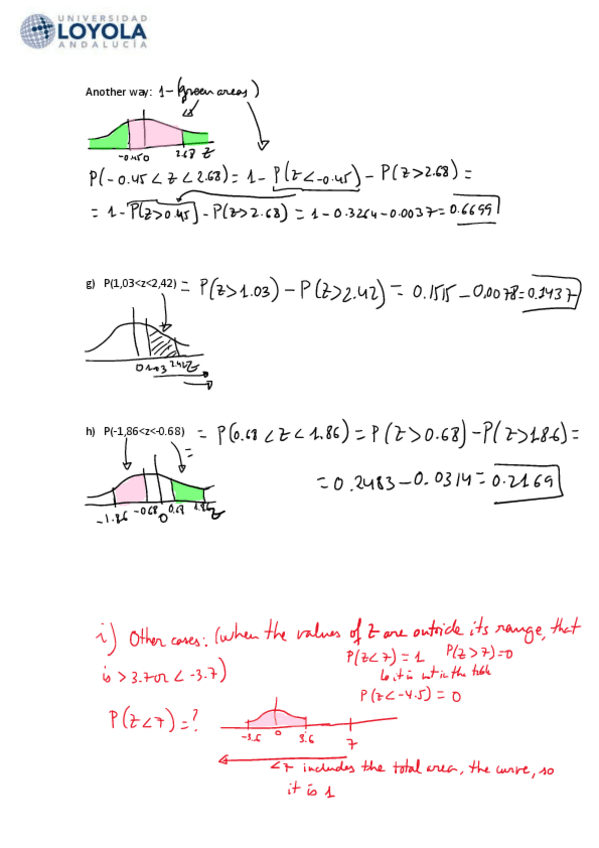 UNIVERSIDAD
LOYOLA
ANDALUCÍA
Another way: 1-(green areas)
-0.45 0 2.68 Z
P(-0.45 < Z < 2.68) = 1 - P(Z < -0.45) - P(Z > 2.68) =
= 1 - P(Z > 0.45) - P(Z > 2.68) = 1 - 0.3264 - 0.0037 = 0.6699
g) P(1,03<z<2,42) = P(Z > 1.03) - P(Z > 2.42) = 0.1515 - 0.0078 = 0.1437
0 1.03 2.42 Z
h) P(-1,86<z<-0.68) = P(0.68 < Z < 1.86) = P(Z > 0.68) - P(Z > 1.86) =
=
= 0.2483 - 0.0314 = 0.2169
-1.86 -0.68 0 0.68 1.86 Z
i) Other cases: (when the values of Z are outside its range, that
is > 3.7 or < -3.7)
P(Z<7) = 1 P(Z>7) = 0
it is not in the table
P(Z<-4.5) = 0
P(Z<7) = ?
-3.6 0 3.6 7
<7 includes the total area, the curve, so
it is 1